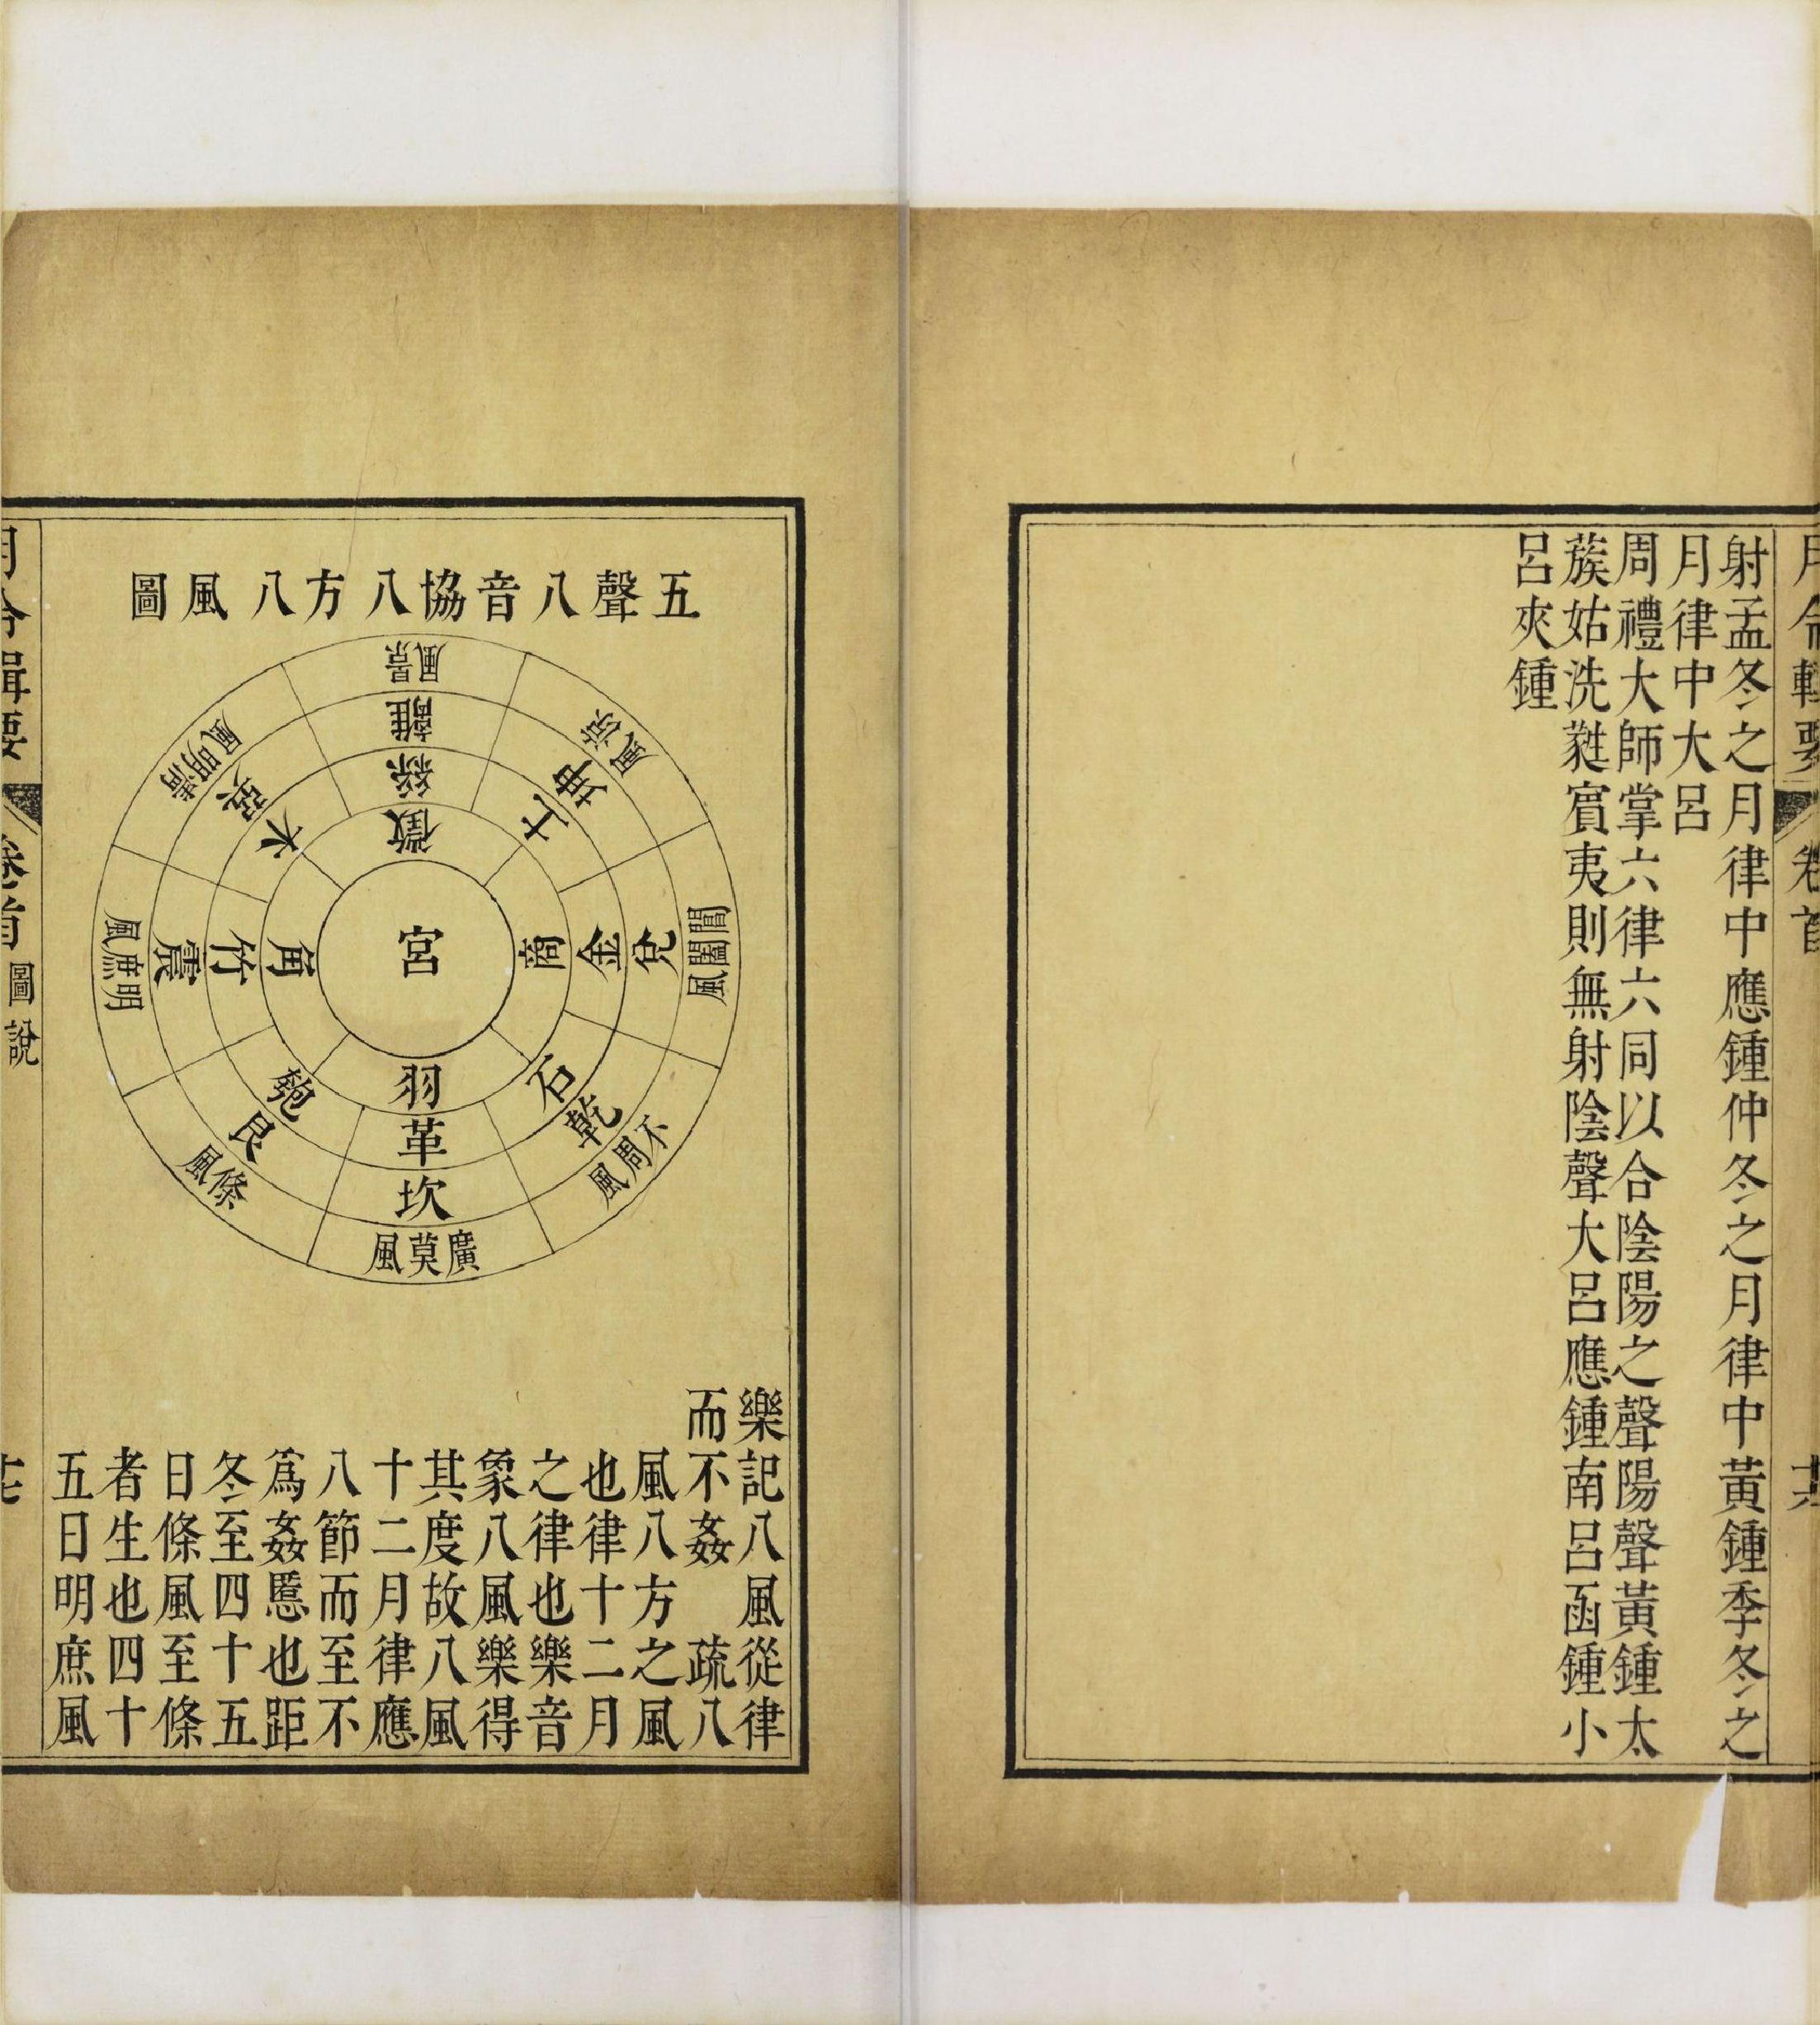 月令輯要
卷首
射孟冬之月律中應鍾仲冬之月律中黃鍾季冬之
月律中大呂
周禮大師掌六律六同以合陰陽之聲陽聲黃鍾太
蔟姑洗蕤賓夷則無射陰聲大呂應鍾南呂函鍾小
呂夾鍾
五聲八音協八方八風圖
宮
徵
商
羽
角
絲
土
金
石
革
匏
竹
木
離
坤
兌
乾
坎
艮
震
巽
景風
涼風
閶闔風
不周風
廣莫風
條風
明庶風
清明風
樂記八風從律
而不姦 疏八
風八方之風
也律十二月
之律也樂音
象八風樂得
其度故八風
十二月律應
八節而至不
爲姦慝也距
冬至四十五
日條風至條
者生也四十
五日明庶風
月令輯要
卷首
圖說